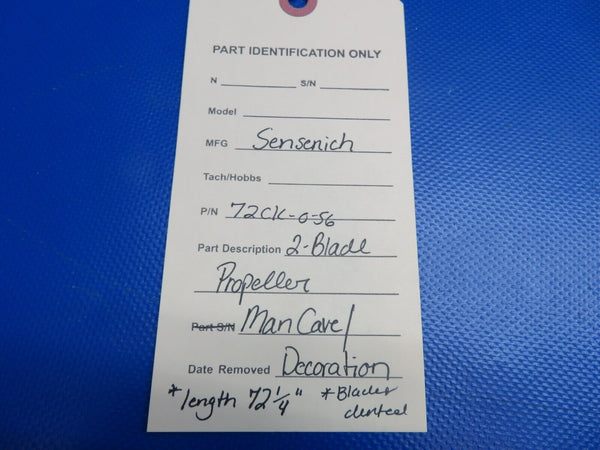 PART IDENTIFICATION ONLY
N S/N
Model
MFG Sensenich
Tach/Hobbs
P/N 72CK-0-56
Part Description 2-Blade
Propeller
Part S/N Man Cave/
Date Removed Decoration
*length 72 1/4" *Blades
dented